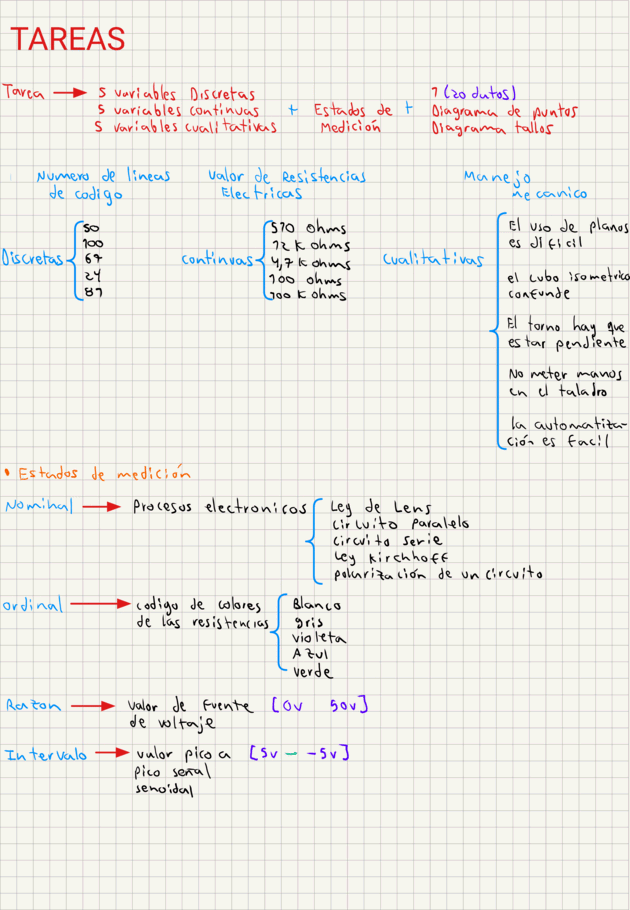 TAREAS
Tarea → 5 variables Discretas
5 variables continuas + Estados de +
5 variables cualitativas Medición
1 (20 datos)
Diagrama de puntos
Diagrama tallos
Numero de lineas
de codigo
Valor de Resistencias
Electricas
Manejo
Mecanico
Discretas
50
100
67
24
87
continuas
570 ohms
12 K ohms
4,7 K ohms
100 ohms
100 K ohms
cualitativas
El uso de planos
es dificil
el cubo isometrico
confunde
El torno hay que
estar pendiente
No meter manos
en el taladro
la automatiza-
ción es facil
• Estados de medición
Nominal → Procesos electronicos
Ley de Lens
circuito paralelo
circuito serie
Ley Kirchhoff
polarización de un circuito
ordinal → codigo de colores
de las resistencias
Blanco
gris
violeta
Azul
verde
Razon → Valor de fuente [0v 50v]
de voltaje
Intervalo → valor pico a [5v — -5v]
pico señal
senoidal